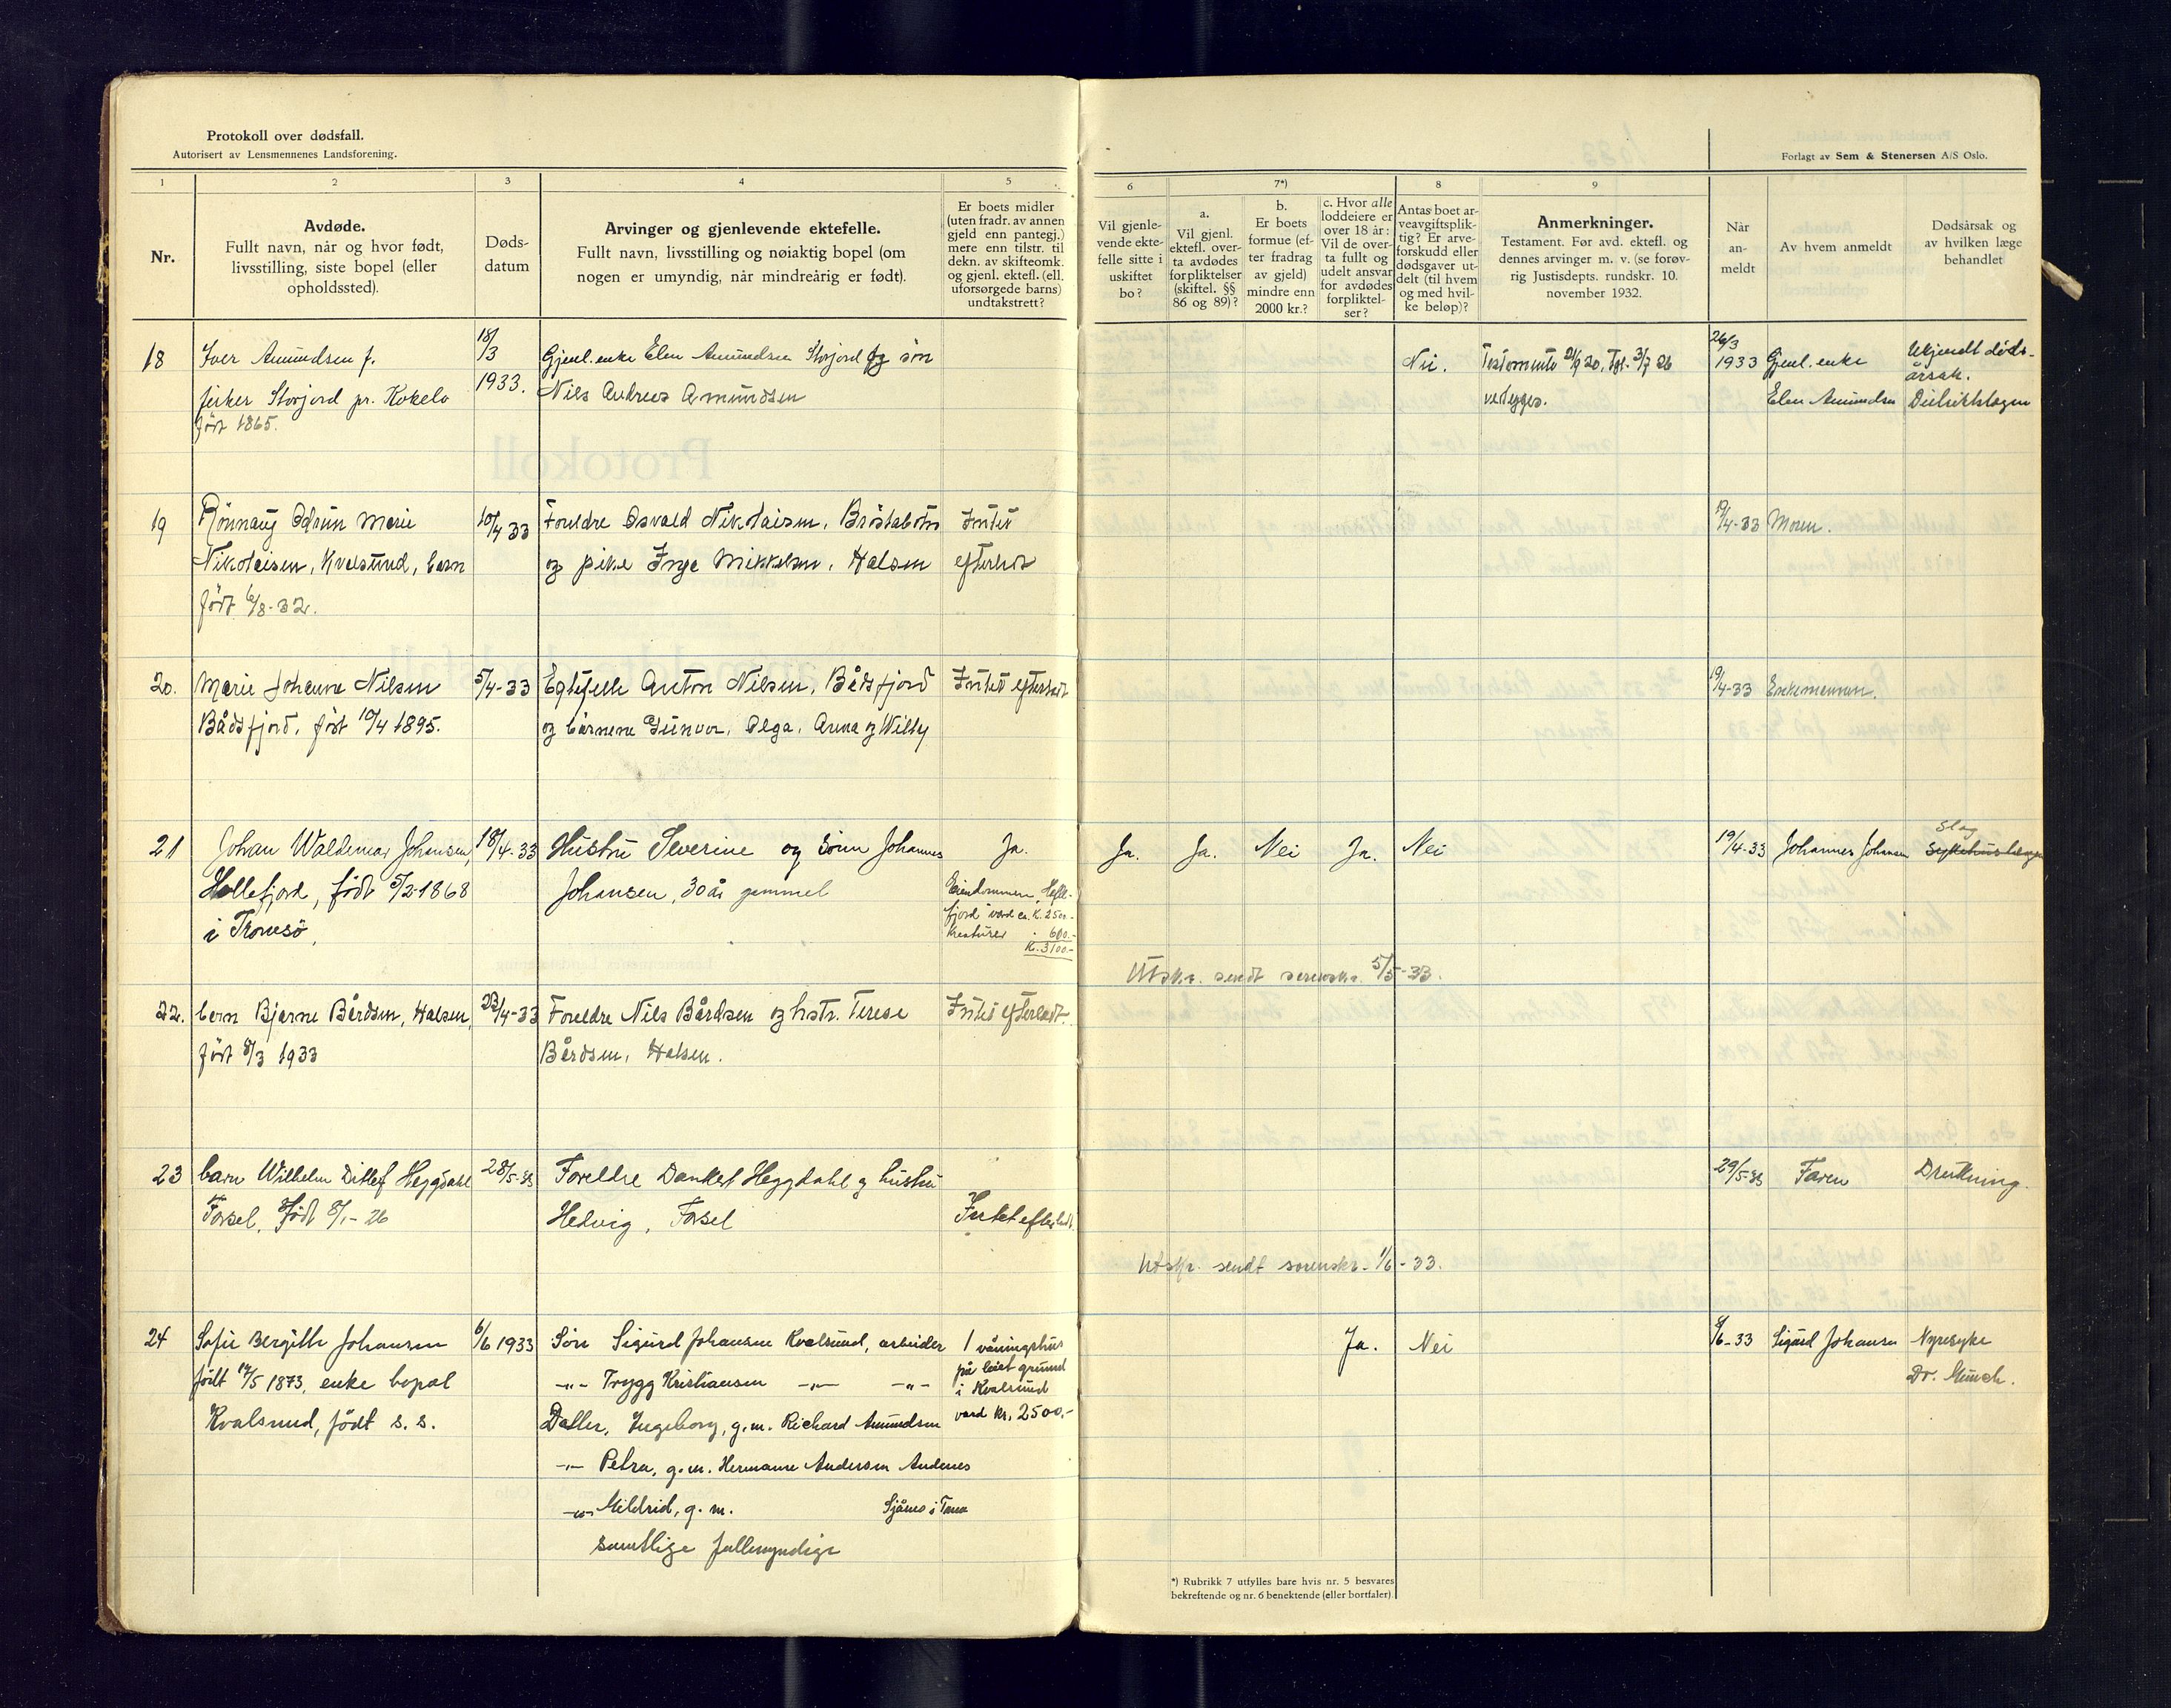 Protokoll over dødsfall.
Autorisert av Lensmennenes Landsforening.
Forlagt av Sem & Stenersen A/S Oslo.
1 2 3 4 5 6 7*) 8 9
Nr.
Avdøde.
Fullt navn, når og hvor født,
livsstilling, siste bopel (eller
opholdssted).
Døds-
datum
Arvinger og gjenlevende ektefelle.
Fullt navn, livsstilling og nøiaktig bopel (om
nogen er umyndig, når mindreårig er født).
Er boets midler
(uten fradr. av annen
gjeld enn pantegj.)
mere enn tilstr. til
dekn. av skifteomk.
og gjenl. ektefl. (ell.
uforsørgede barns)
undtakstrett?
Vil gjenle-
vende ekte-
felle sitte i
uskiftet
bo?
a.
Vil gjenl.
ektefl. over-
ta avdødes
forpliktelser
(skiftel. §§
86 og 89)?
b.
Er boets
formue (ef-
ter fradrag
av gjeld)
mindre enn
2000 kr.?
c. Hvor alle
loddeiere er
over 18 år:
Vil de over-
ta fullt og
udelt ansvar
for avdødes
forpliktel-
ser?
Antas boet ar-
veavgiftsplik-
tig? Er arve-
forskudd eller
dødsgaver ut-
delt (til hvem
og med hvil-
ke beløp)?
Anmerkninger.
Testament. Før avd. ektefl. og
dennes arvinger m. v. (se forøv-
rig Justisdepts. rundskr. 10.
november 1932.
Når
an-
meldt
Av hvem anmeldt
Dødsårsak og
av hvilken læge
behandlet
18
Iver Amundsen f.
fisker Storjord pr. Kokelv
født 1865.
18/3
1933.
Gjenl. enke Elen Amundsen Storjord og søn
Nils Andreas Amundsen
Nei.
Testamente 21/9 20. Tgl. 3/7 26
vedlegges.
26/3
1933
Gjenl. enke
Elen Amundsen
Ukjendt døds-
årsak.
Distriktslægen
19
Rönnaug Odrun Marie
Nikolaisen, Kvalsund, barn
født 6/8-32.
10/4 33
Foreldre Osvald Nikolaisen,
og pike Inga Mikkelsen, Halsen
Intet
efterladt
19/4-33 Moren.
20.
Marie Johanne Nilsen
Bådsfjord, født 10/4 1895.
5/4-33
Egtefelle Anton Nilsen, Bådsfjord
og barnene Gunvor, Olga, Anna og Willy
Intet efterladt
19/4-33 Enkemannen.
21
Johan Waldemar Johansen,
Hellefjord, født 5/2-1868
i Tromsö,
18/4-33
Hustru Severine og sönn Johannes
Johansen, 30 år gammel
Ja.
Eiendommen "Helle-
fjord" værd ca. K. 2500.-
kreaturer - 600.-
K. 3100.-
Ja. Ja. Nei Ja. Nei
19/4-33 Johannes Johansen
Slag
Sykehuslægen
Utskr. sendt sorenskr. 5/5-33.
22.
barn Bjarne Bårdsen, Halsen,
født 8/3 1933
23/4-33
Foreldre Nils Bårdsen og hstr. Terese
Bårdsen, Halsen.
Intet efterladt.
23
barn Wilhelm Ditlef Heggdahl
Forsøl, Født 8/1-26
28/5-33
Foreldre Dankert Heggdahl og hustru
Hedvig, Forsøl
Intet efterladt.
29/5-33 Faren
Drukning.
Utskr. sendt sorenskr. 1/6-33.
24
Sofie Bergitte Johansen
født 14/5 1873, enke bopal
Kvalsund, født s. s.
6/6 1933
Søn Sigurd Johansen Kvalsund, arbeider
-"- Trygg Kristiansen -"- -"-
Datter, Ingeborg, g.m. Richard Amundsen
-"- Petra, g.m. Hermann Andersen Andenes
-"- Mildrid, g.m. Sjånes i Tana
samtlige fullmyndige
1 våningshus
på leiet grund
i Kvalsund
værd kr. 2500.-
Ja. Nei
6/6-33 Sigurd Johansen
Nyresyke
Dr. Munch.
*) Rubrikk 7 utfylles bare hvis nr. 5 besvares
bekreftende og nr. 6 benektende (eller bortfaler)